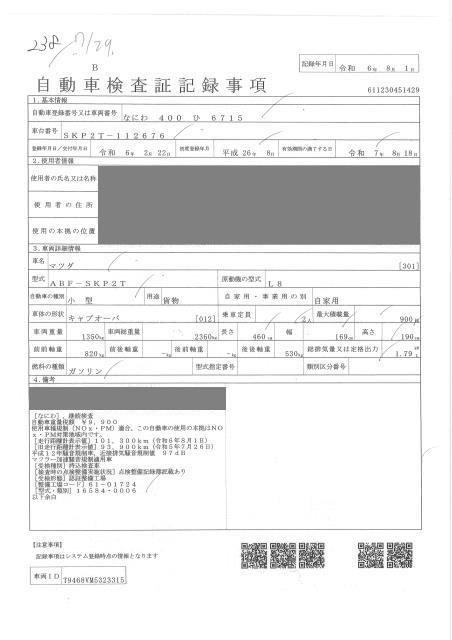 238 7/29
B
記録年月日 令和 6年 8月 1日
自動車検査証記録事項
611230451429
1.基本情報
自動車登録番号又は車両番号 なにわ 400 ひ 6715
車台番号 SKP2T-112676
登録年月日/交付年月日 令和 6年 2月 22日 初度登録年月 平成 26年 8月 有効期間の満了する日 令和 7年 8月 18日
2.使用者情報
使用者の氏名又は名称
使用者の住所
使用の本拠の位置
3.車両詳細情報
車名 マツダ [301]
型式 ABF-SKP2T 原動機の型式 L8
自動車の種別 小型 用途 貨物 自家用・事業用の別 自家用
車体の形状 キャブオーバ [012] 乗車定員 2人 最大積載量 900kg
車両重量 1350kg 車両総重量 2360kg 長さ 460cm 幅 169cm 高さ 190cm
前前軸重 820kg 前後軸重 -kg 後前軸重 -kg 後後軸重 530kg 総排気量又は定格出力 1.79
燃料の種類 ガソリン 型式指定番号 類別区分番号
4.備考
[なにわ],継続検査
自動車重量税額 ¥9,900
使用車種規制(NOx・PM)適合,この自動車の使用の本拠はNO
x・PM対策地域内です。
[走行距離計表示値]101,300km(令和6年8月1日)
[旧走行距離計表示値]93,900km(令和5年7月26日)
平成12年騒音規制車,近接排気騒音規制値 97dB
マフラー加速騒音規制適用車
[受検種別]持込検査車
[検査時の点検整備実施状況]点検整備記録簿記載あり
[受検形態]認証整備工場
[整備工場コード]61-01724
[型式・類別]16584-0006
以下余白
【注意事項】
記録事項はシステム登録時点の情報となります
車両ID T9468VM5323315